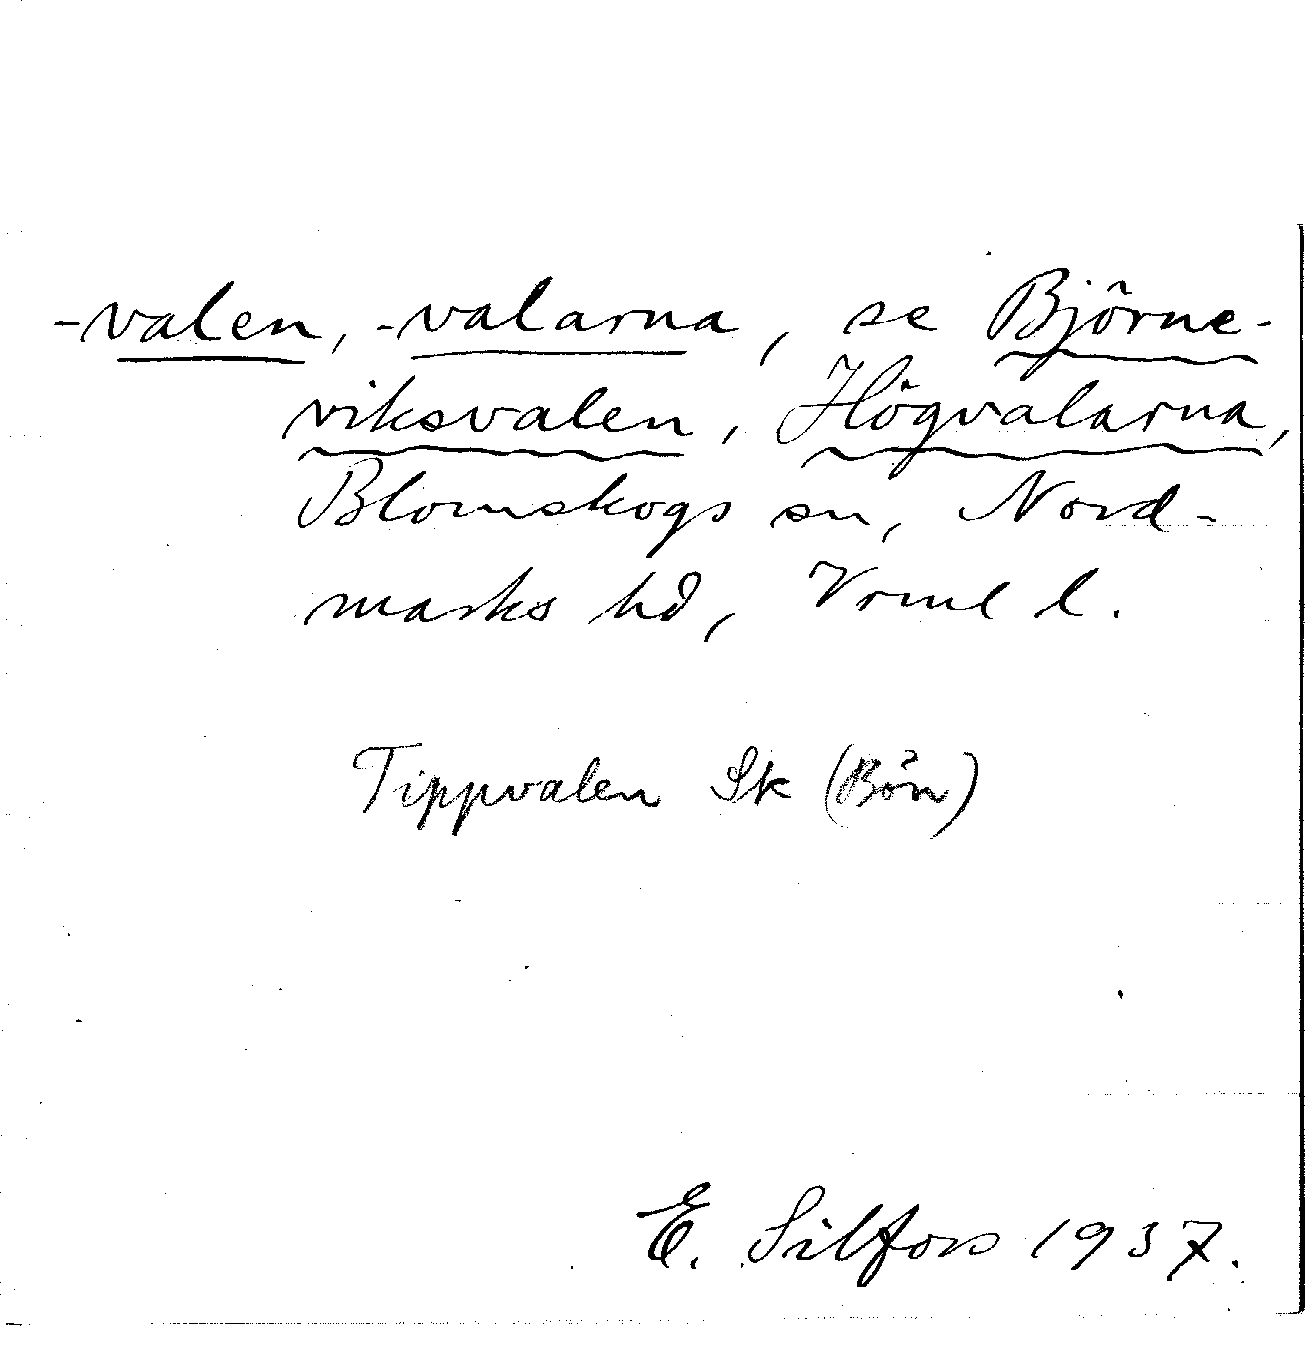 -valen, -valarna, se Björne-
viksvalen, Högvalarna,
Blomskogs sn, Nord-
marks hd, Vrml l.
Tippvalen Sk (Bön)
E. Silfors 1937.